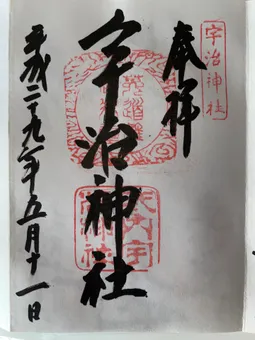 宇治神社
奉拝
宇治神社
平成二十九年五月十一日